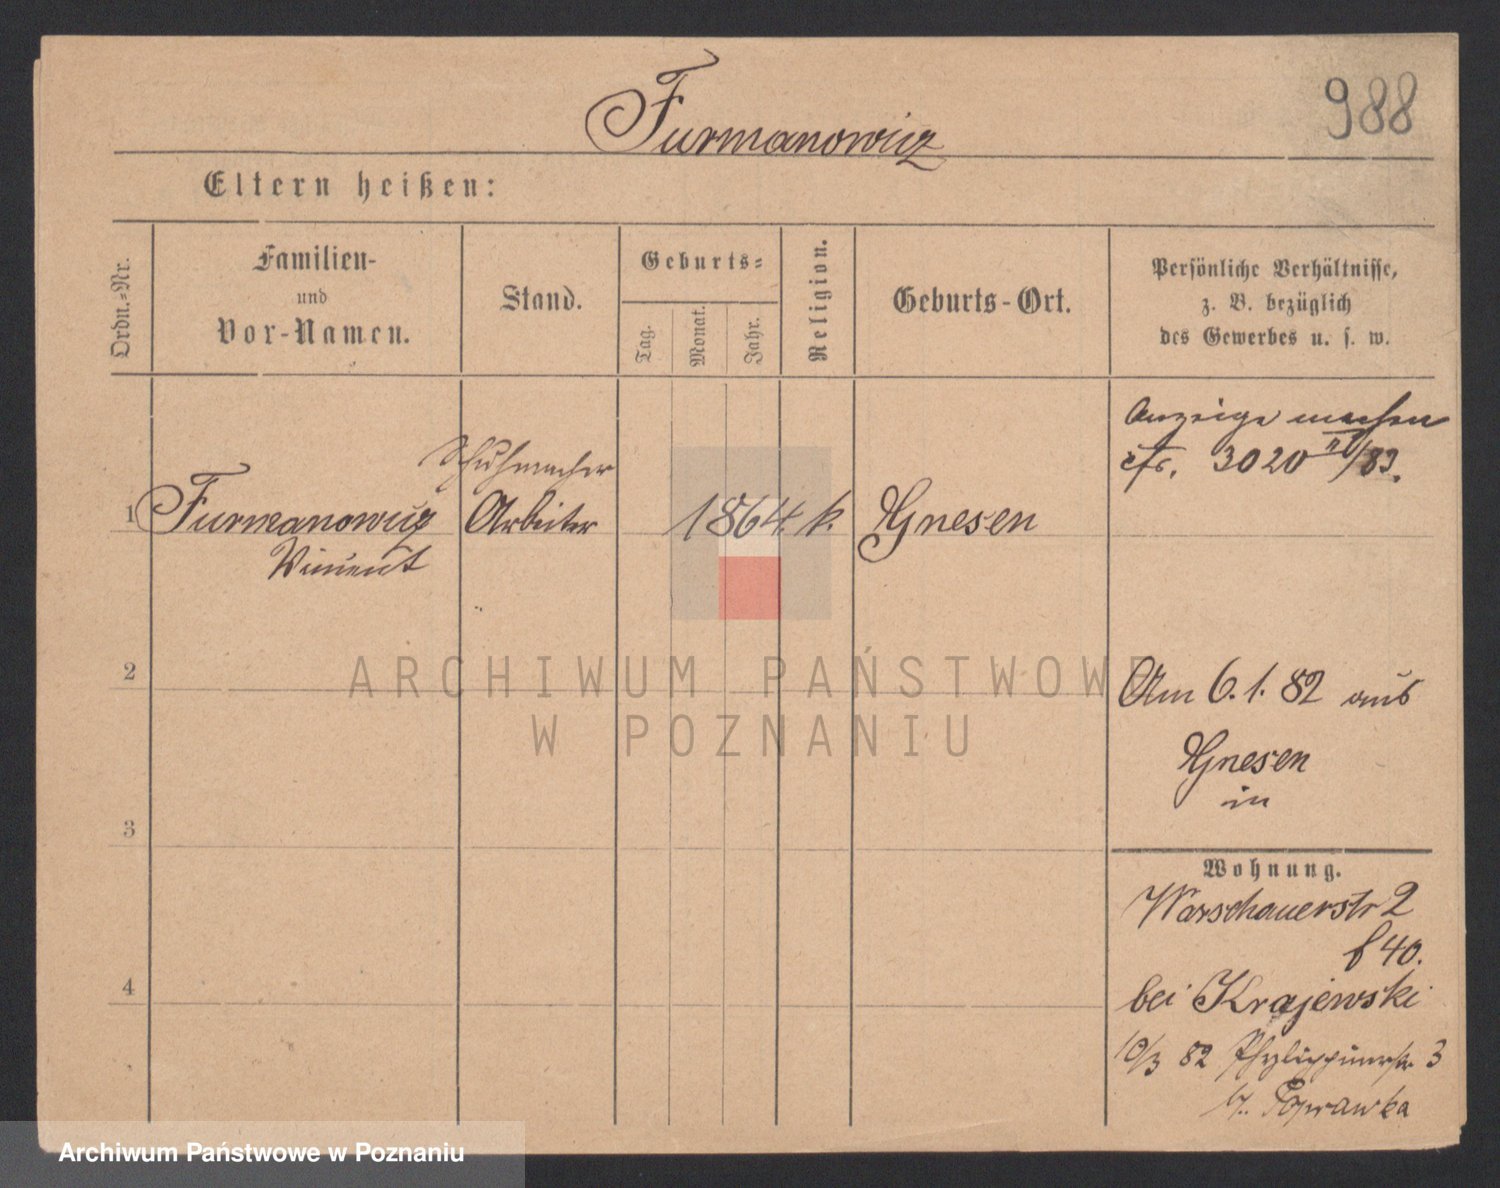 Furmanowicz
988
Eltern heißen:
Ordn.-Nr.
Familien-
und
Vor-Namen.
Stand.
Geburts-
Tag.
Monat.
Jahr.
Religion.
Geburts-Ort.
Persönliche Verhältnisse,
z. B. bezüglich
des Gewerbes u. s. w.
Anzeige machen
cfr. 3020 II/83.
Schuhmacher
1 Furmanowicz Arbeiter 1864. k. Gnesen
Vincent
2
Am 6. 1. 82 aus
Gnesen
in
3
Wohnung.
Warschauerstr 2
f 40.
4
bei Krajewski
10/3 82 3
b. Poprawka
ARCHIWUM PAŃSTWOWE
W POZNANIU
Archiwum Państwowe w Poznaniu